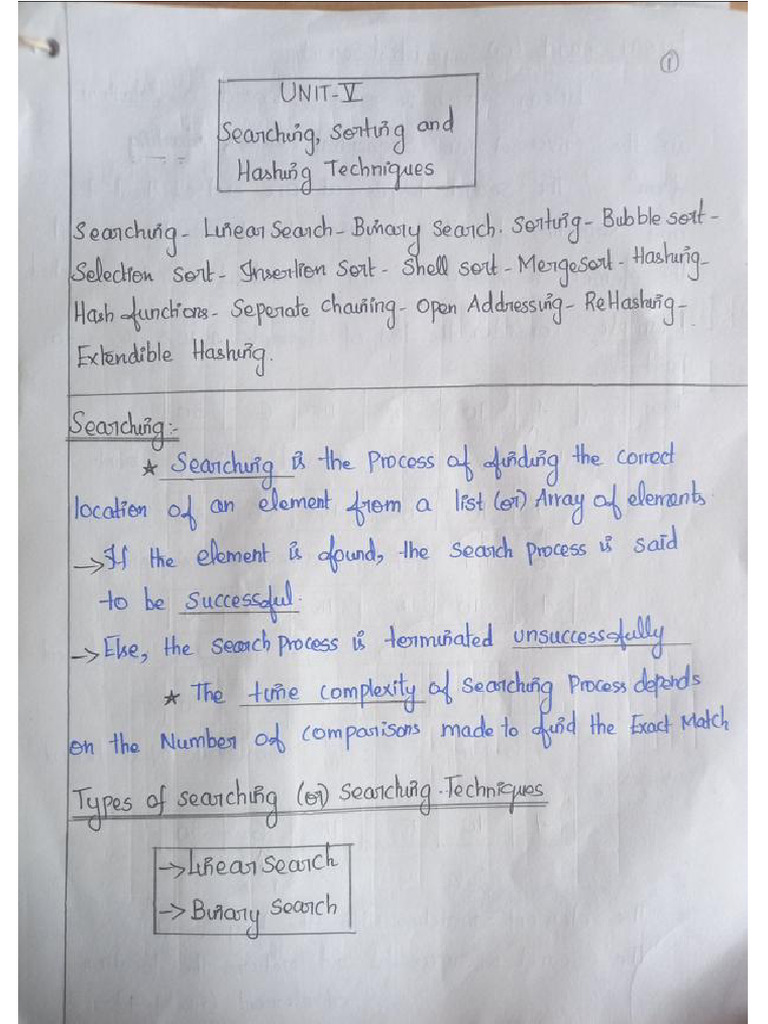 ①
UNIT-V
Searching, Sorting and
Hashing Techniques
Searching - Linear Search - Binary Search. Sorting - Bubble sort -
Selection sort - Insertion sort - Shell sort - Mergesort - Hashing -
Hash functions - Seperate Chaining - Open Addressing - ReHashing -
Extendible Hashing.
Searching:-
★ Searching is the Process of finding the correct
location of an element from a list (or) Array of elements.
→ If the element is found, the search process is said
to be Successful.
→ Else, the search process is terminated unsuccessfully
★ The time complexity of searching Process depends
on the Number of comparisons made to find the Exact Match
Types of searching (or) searching Techniques
→ Linear Search
→ Binary search